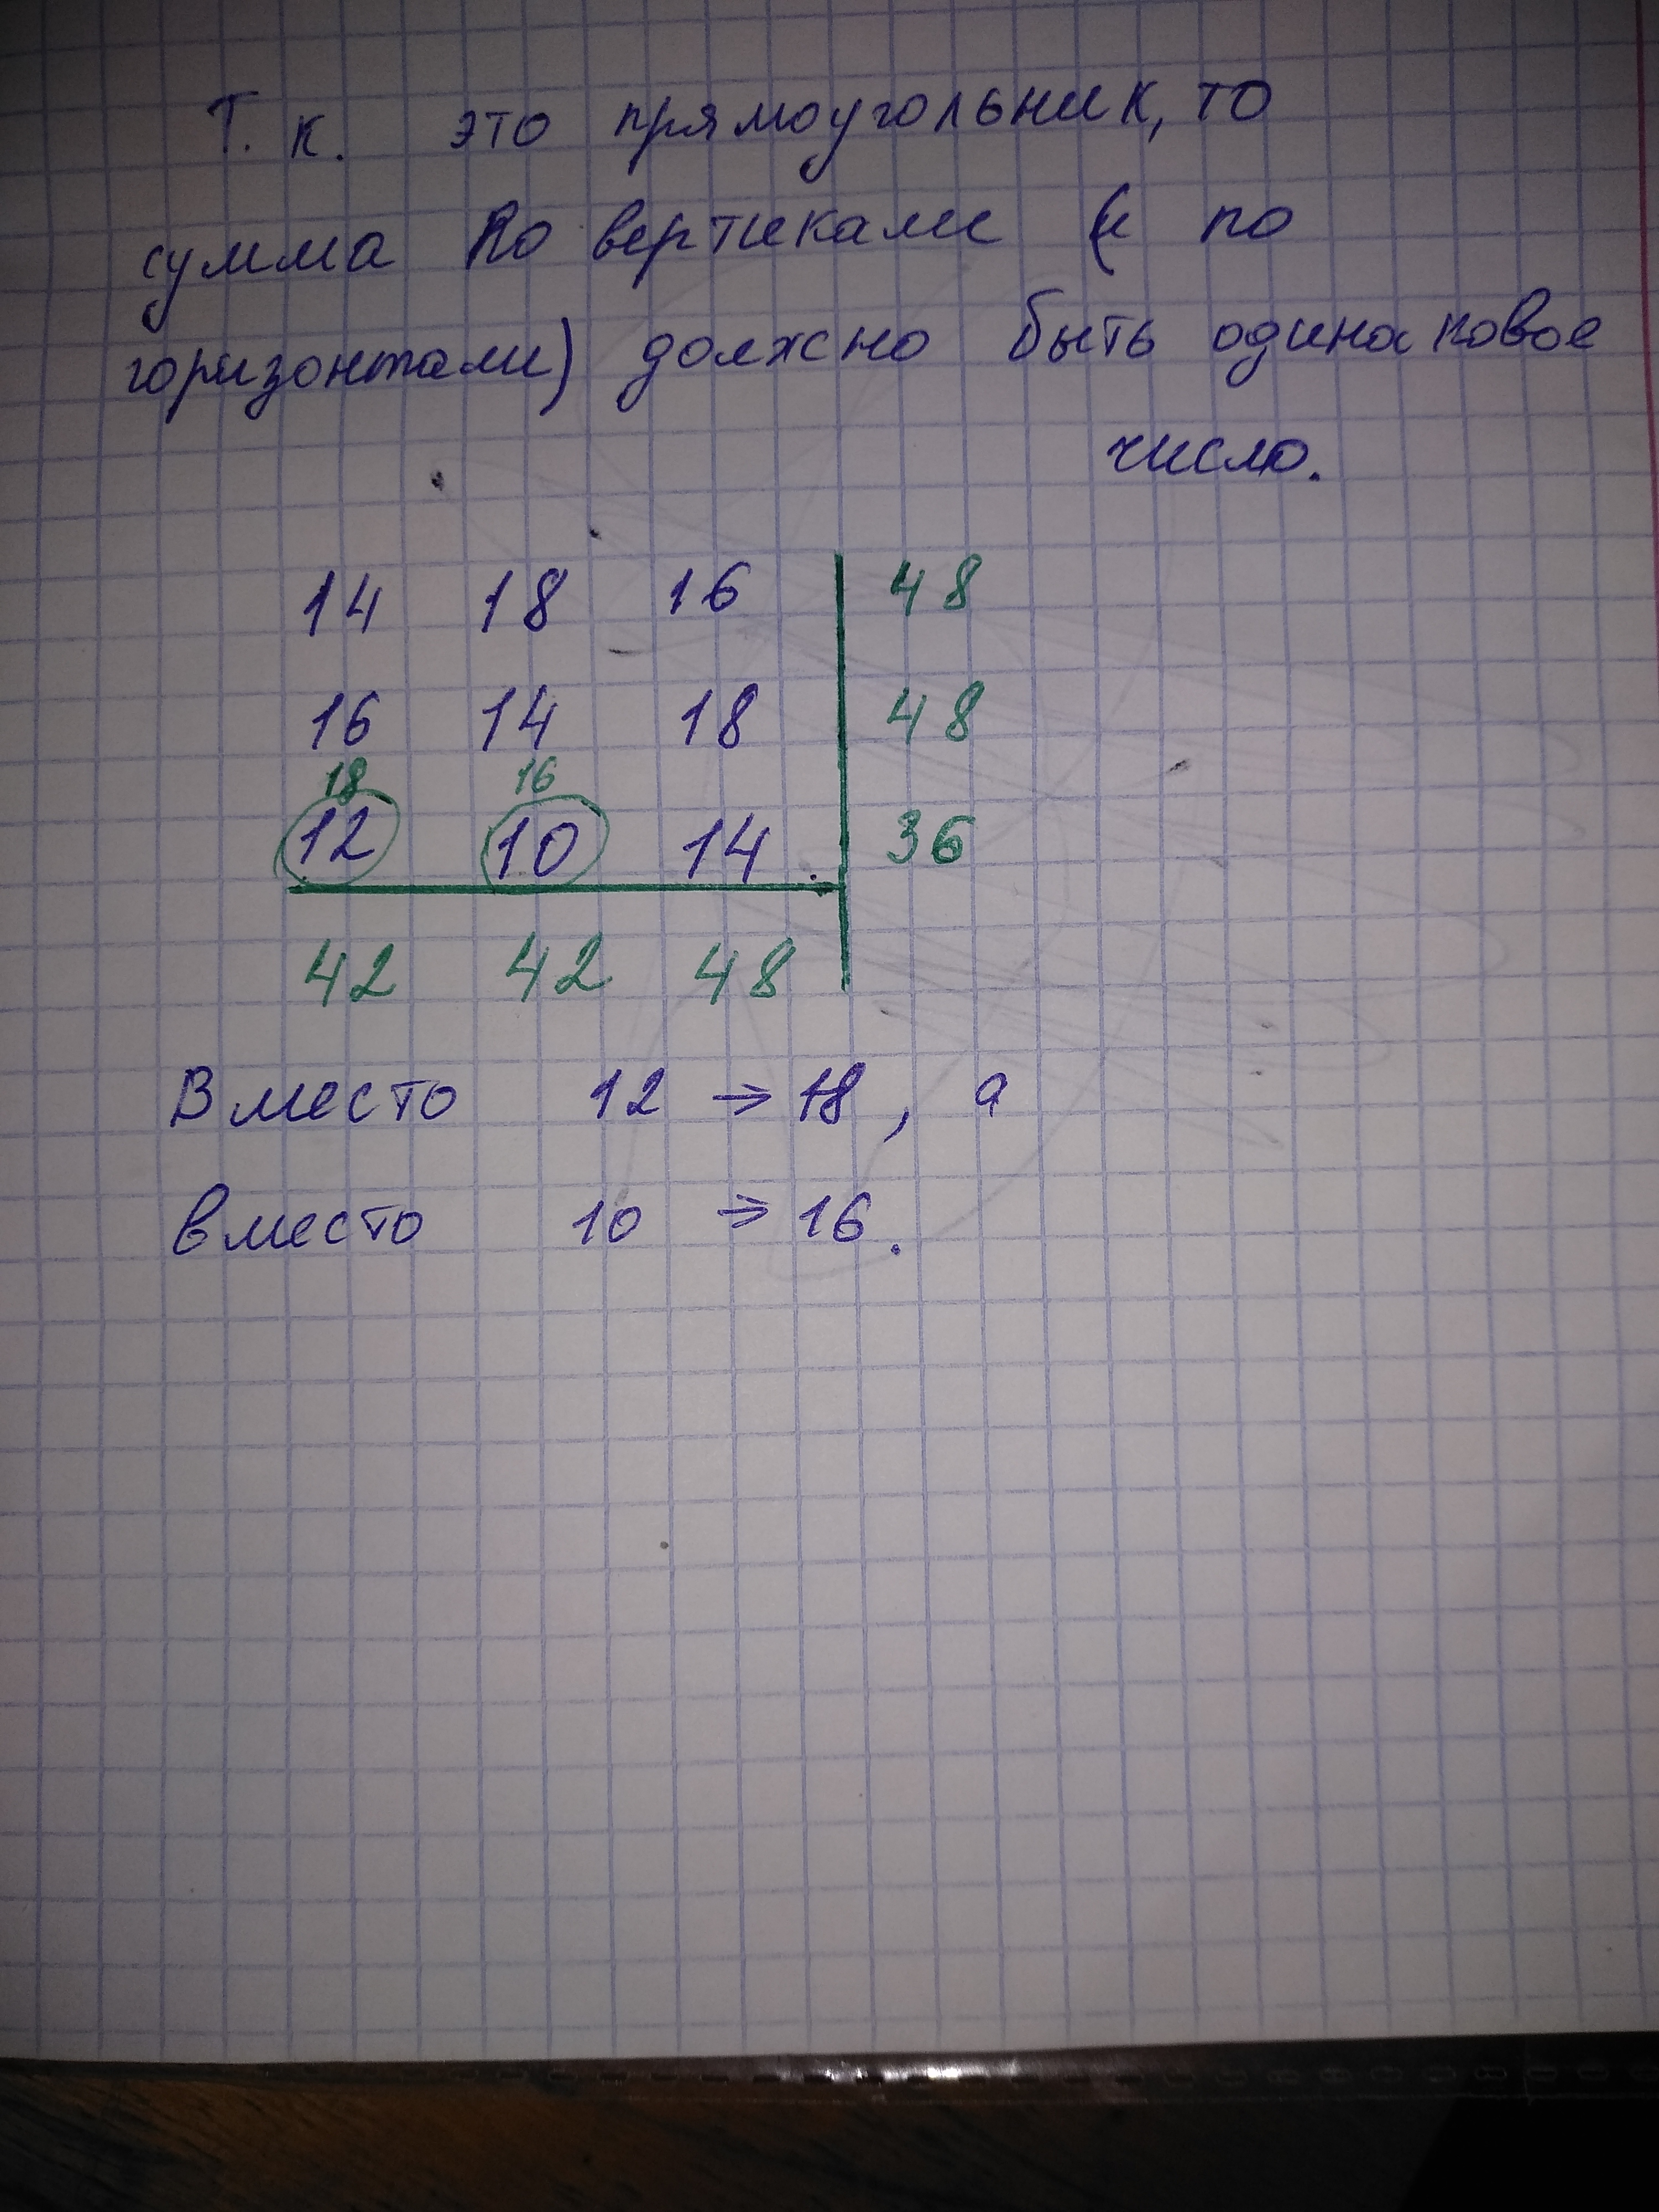 Т. к. это прямоугольник, то
сумма по вертикали (и по
горизонтали) должно быть одинаковое
число.
14 18 16 48
16 14 18 48
18 16
12 10 14 36
42 42 48
Вместо 12 → 18, а
вместо 10 → 16.